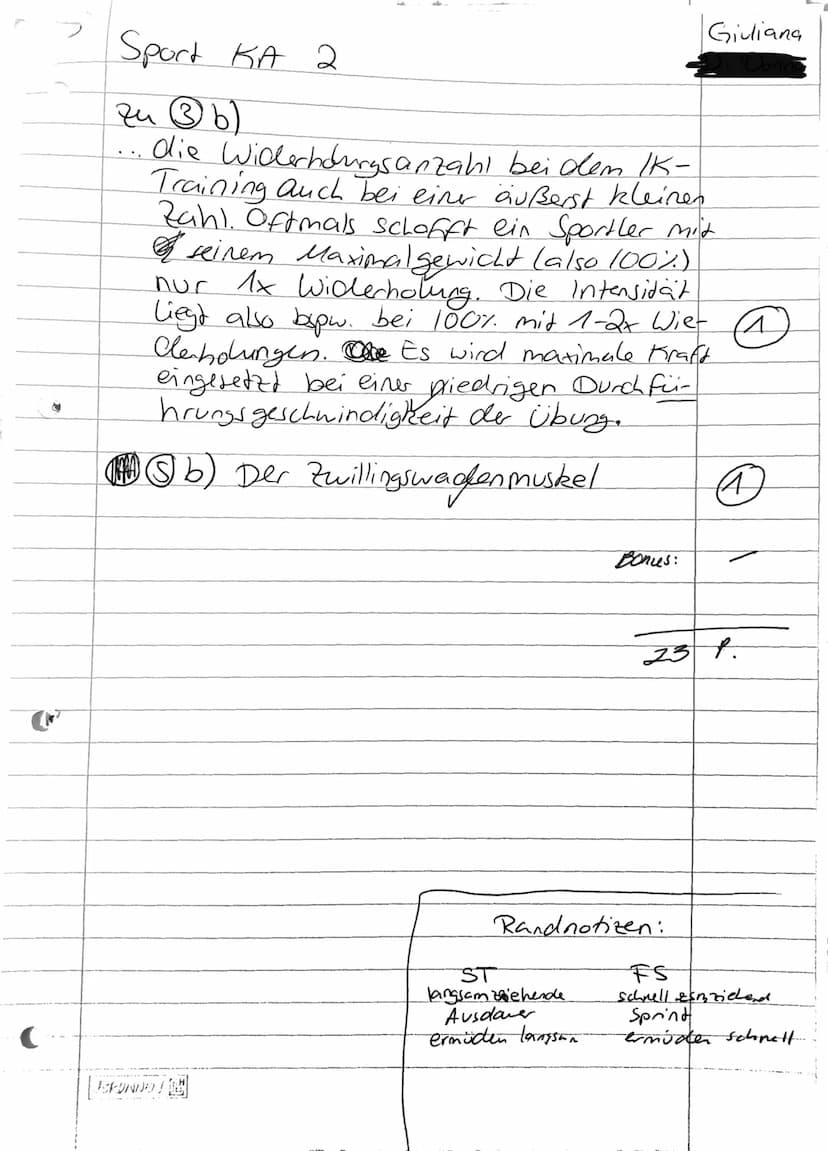 Giuliana
Sport KA 2
zu ③ b)
... die Widerholungsanzahl bei dem IK-
Training auch bei einer äußerst kleinen
Zahl. Oftmals schafft ein Sportler mit
seinem Maximalgewicht (also 100%)
nur 1x Widerholung. Die Intensität
liegt also bspw. bei 100% mit 1-2x Wie-
derholungen. Es wird maximale Kraft
①
eingesetzt bei einer niedrigen Durchfü-
hrungsgeschwindigkeit der Übung.
⑤ b) Der Zwillingswadenmuskel
①
Bonus: —
23 P.
Randnotizen:
ST FS
langsamziehende schnell
Ausdauer Sprint
ermüden langsam ermüden schnell